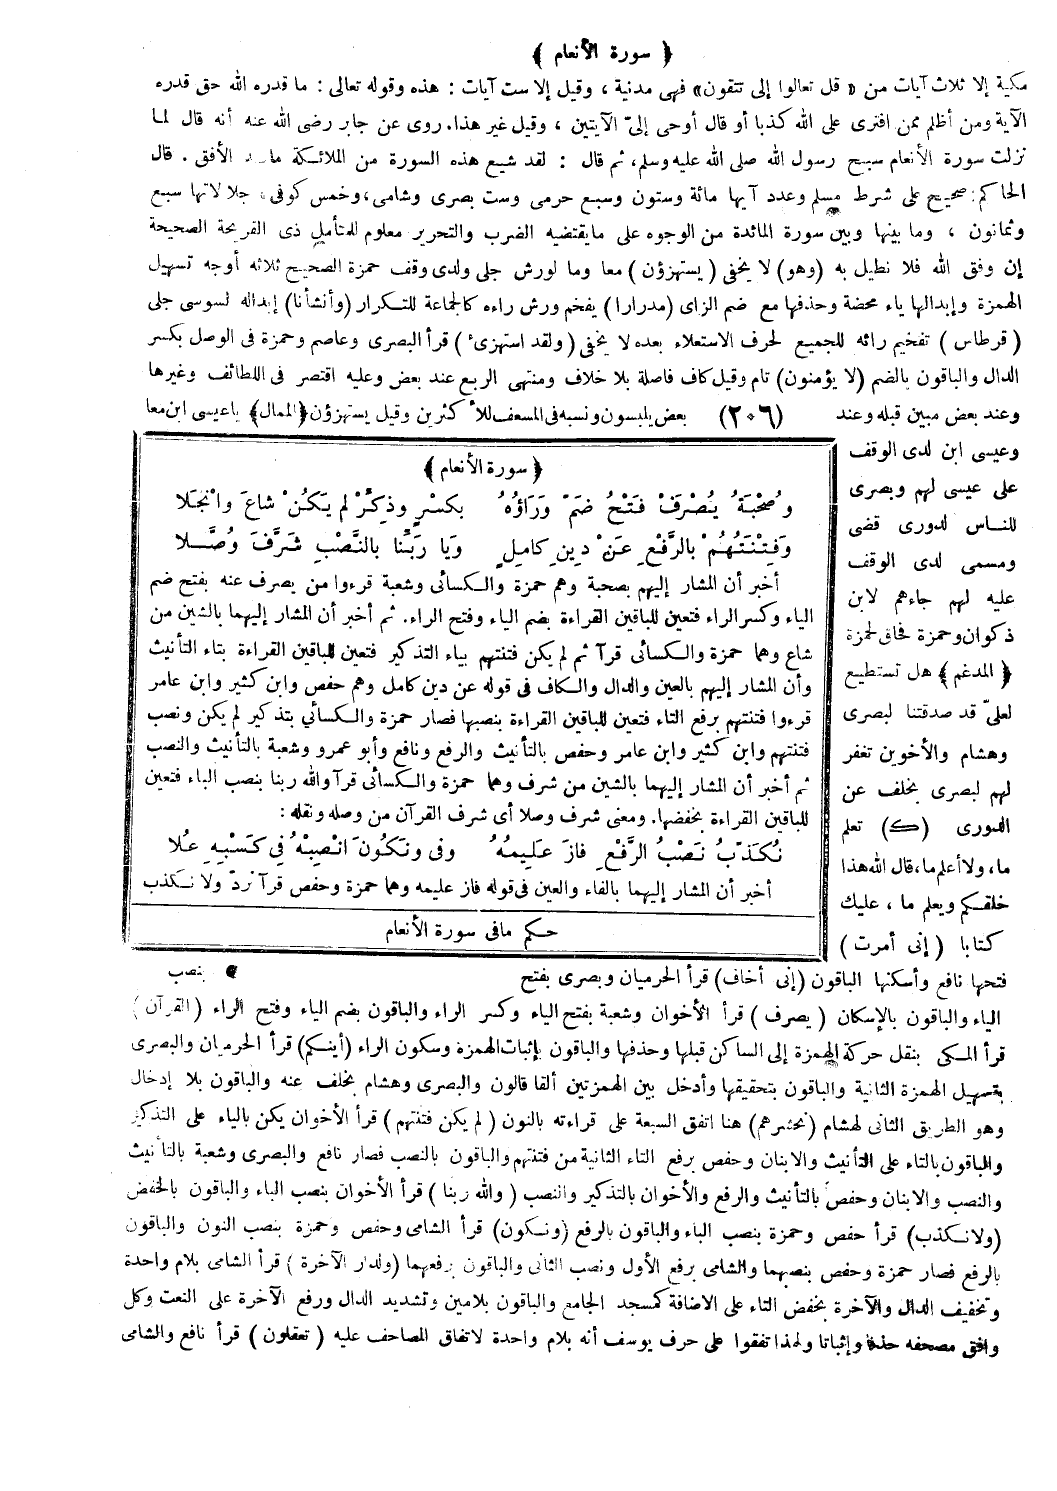 ﴿ سورة الأنعام ﴾
مكية إلا ثلاث آيات من « قل تعالوا إلى تتقون» فهى مدنية ، وقيل إلا ست آيات : هذه وقوله تعالى : ما قدره الله حق قدره
الآية ومن أظلم ممن افترى على الله كذبا أو قال أوحى إلىّ الآيتين ، وقيل غير هذا. روى عن جابر رضى الله عنه أنه قال لما
نزلت سورة الأنعام سبح رسول الله صلى الله عليه وسلم، ثم قال : لقد شيع هذه السورة من الملائكة الأفق . قال
الحاكم: صحيح على شرط مسلم وعدد آيها مائة وستون وسبع حرمى وست بصرى وشامى، وخمس كوفى، جلالاتها سبع
وثمانون ، وما بينها وبين سورة المائدة من الوجوه على مايقتضيه الضرب والتحرير معلوم للمتأمل ذى القريحة الصحيحة
إن وفق الله فلا نطيل به (وهو) لا يخفى (يستهزؤن) معا وما لورش جلى ولدى وقف حمزة الصحيح ثلاثه أوجه تسهيل
الهمزة وإبدالها ياء محضة وحذفها مع ضم الزاى (مدرارا) يفخم ورش راءه كالجماعة للتكرار (وأنشأنا) إبداله لسوسى جلى
( قرطاس ) تفخيم رائه للجميع لحرف الاستعلاء بعده لا يخفى ( ولقد استهزىء ) قرأ البصرى وعاصم وحمزة فى الوصل بكسر
الدال والباقون بالضم (لا يؤمنون) تام وقيل كاف فاصلة بلا خلاف ومنتهى الربع عند بعض وعليه اقتصر فى اللطائف وغيرها
وعند بعض مبين قبله وعند (٢٠٦) بعض يلبسون ونسبه فى المسعف للأكثرين وقيل يستهزؤن ﴿الممال﴾ ياعيسى ابن معا
وعيسى ابن لدى الوقف
على عيسى لهم وبصرى
للناس لدورى قضى
ومسمى لدى الوقف
عليه لهم جاءهم لابن
ذكوان وحمزة فحاق لحمزة
﴿ المدغم ﴾ هل تستطيع
لعلىّ قد صدقتنا لبصرى
وهشام والأخوين تغفر
لهم لبصرى بخلف عن
الدورى (ك) تعلم
ما، ولا أعلم ما، قال الله هذا
خلقكم ويعلم ما ، عليك
كتابا ( إنى أمرت )
﴿ سورة الأنعام ﴾
وَصُحْبَةُ يُصْرَفْ فَتْحُ ضَمّ وَرَاؤُهُ بكَسْرٍ وذَكِّرْ لم يَكُنْ شاعَ وانْجَلَا
وَفِتْنَتُهُمْ بالرَّفْعِ عَنْ دِينِ كامِلٍ وَيا رَبَّنا بالنَّصْبِ شَرَّفَ وُصَّلا
أخبر أن المشار إليهم بصحبة وهم حمزة والكسائى وشعبة قرءوا من يصرف عنه بفتح ضم
الياء وكسر الراء فتعين للباقين القراءة بضم الياء وفتح الراء. ثم أخبر أن المشار إليهما بالشين من
شاع وهما حمزة والكسائى قرآ ثم لم يكن فتنتهم بياء التذكير فتعين للباقين القراءة بتاء التأنيث
وأن المشار إليهم بالعين والدال والكاف فى قوله عن دين كامل وهم حفص وابن كثير وابن عامر
قرءوا فتنتهم برفع التاء فتعين للباقين القراءة بنصبها فصار حمزة والكسائي بتذكير لم يكن ونصب
فتنتهم وابن كثير وابن عامر وحفص بالتأنيث والرفع ونافع وأبو عمرو وشعبة بالتأنيث والنصب
ثم أخبر أن المشار إليهما بالشين من شرف وهما حمزة والكسائى قرآ والله ربنا بنصب الباء فتعين
للباقين القراءة بخفضها. ومعنى شرف وصلا أى شرف القرآن من وصله ونقله :
نُكَذِّبُ نَصْبُ الرَّفْعِ فازَ عَلِيمُهُ وفى ونَكُونَ انْصِبْهُ فى كَسْبِهِ عُلا
أخبر أن المشار إليهما بالفاء والعين فى قوله فاز عليمه وهما حمزة وحفص قرآ نردّ ولا نكذب
حكم مافى سورة الأنعام
فتحها نافع وأسكنها الباقون (إنى أخاف) قرأ الحرميان وبصرى بفتح بنصب
الياء والباقون بالإسكان ( يصرف ) قرأ الأخوان وشعبة بفتح الياء وكسر الراء والباقون بضم الياء وفتح الراء ( القرآن )
قرأ المكى بنقل حركة الهمزة إلى الساكن قبلها وحذفها والباقون بإثبات الهمزة وسكون الراء (أينكم) قرأ الحرميان والبصرى
بتسهيل الهمزة الثانية والباقون بتحقيقها وأدخل بين الهمزتين ألفا قالون والبصرى وهشام بخلف عنه والباقون بلا إدخال
وهو الطريق الثانى لهشام (نحشرهم) هنا اتفق السبعة على قراءته بالنون ( لم يكن فتنتهم ) قرأ الأخوان يكن بالياء على التذكير
والباقون بالتاء على التأنيث والابنان وحفص برفع التاء الثانية من فتنتهم والباقون بالنصب فصار نافع والبصرى وشعبة بالتأنيث
والنصب والابنان وحفص بالتأنيث والرفع والأخوان بالتذكير والنصب ( والله ربنا ) قرأ الأخوان بنصب الباء والباقون بالخفض
(ولا نكذب) قرأ حفص وحمزة بنصب الباء والباقون بالرفع (ونكون) قرأ الشامى وحفص وحمزة بنصب النون والباقون
بالرفع فصار حمزة وحفص بنصبهما والشامى برفع الأول ونصب الثانى والباقون برفعهما (ولدار الآخرة ) قرأ الشامى بلام واحدة
وتخفيف الدال والآخرة بخفض التاء على الاضافة كمسجد الجامع والباقون بلامين وتشديد الدال ورفع الآخرة على النعت وكل
وافق مصحفه حذفا وإثباتا ولهذا تفقوا على حرف يوسف أنه بلام واحدة لاتفاق المصاحف عليه ( تعقلون ) قرأ نافع والشامى